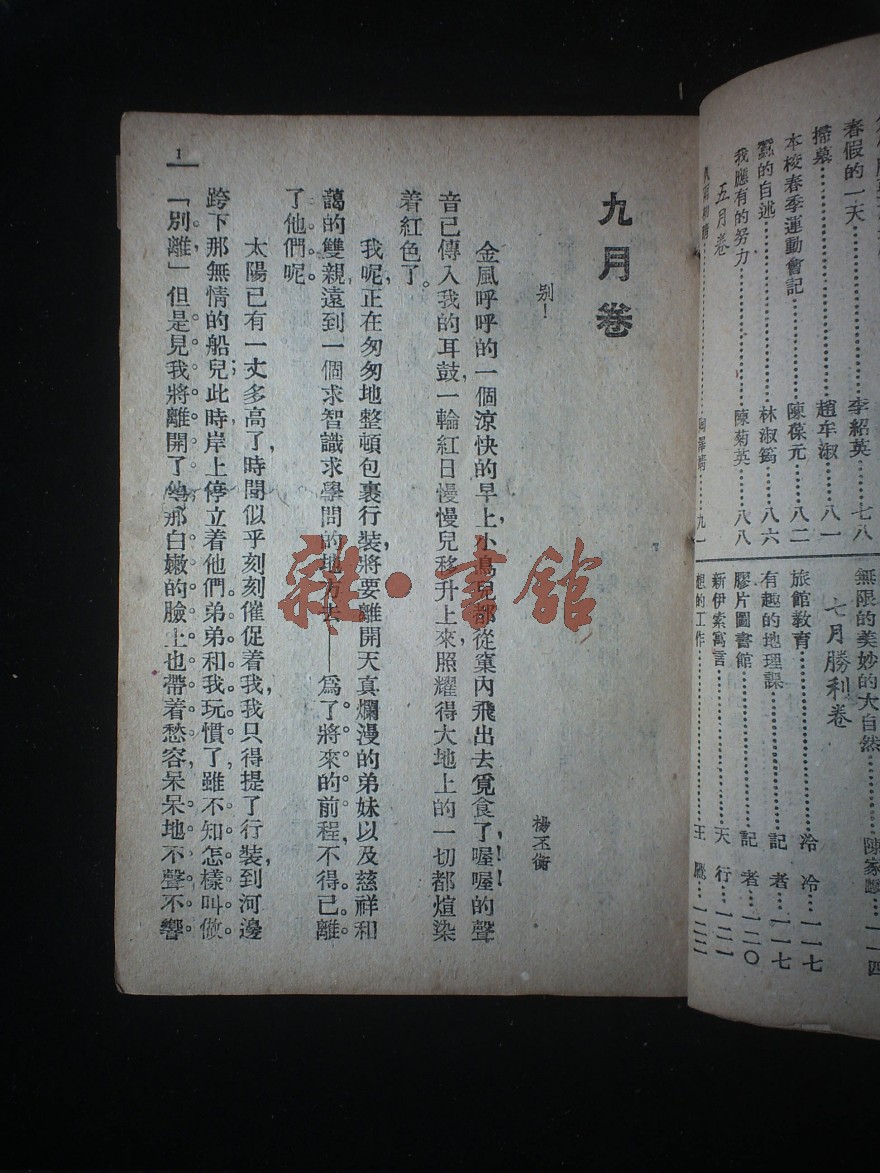 春假的一天……李紹英……七八
掃墓……趙年淑……八一
本校春季運動會記……陳葆元……八二
蠶的自述……林淑筠……八六
我應有的努力……陳菊英……八八
五月卷
九一
無限的美妙的大自然……陳家……一一四
七月勝利卷
旅館教育……冷冷……一一七
有趣的地理課……記者……一一七
膠片圖書館……記者……一二〇
新伊索寓言……天行……一二一
想的工作……王……一二二
九月卷
别！
楊丕衡
金風呼呼的一個涼快的早上，小鳥兒都從窠內飛出去覓食了，喔！喔！的聲
音已傳入我的耳鼓，一輪紅日慢慢兒移升上來，照耀得大地上的一切都煊染
着紅色了。
我呢，正在匆匆地整頓包裹行裝，將要離開天真爛漫的弟妹以及慈祥和
藹的雙親，遠到一個求智識求學問的地方去——爲了將來的前程，不得已離
了他們呢。
太陽已有一丈多高了，時間似乎刻刻催促着我，我只得提了行裝，到河邊
跨下那無情的船兒；此時，岸上停立着他們。弟弟和我玩慣了，雖不知怎樣叫做
「別離」，但是見我將離開了他，那白嫩的臉上也帶着愁容，呆呆地不聲不響
1
雜·書館